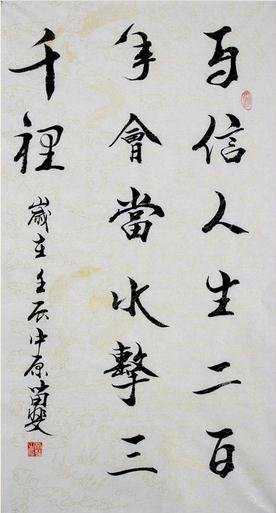 自信人生二百
年會當水擊三
千裡
歲在壬辰中原苗雙